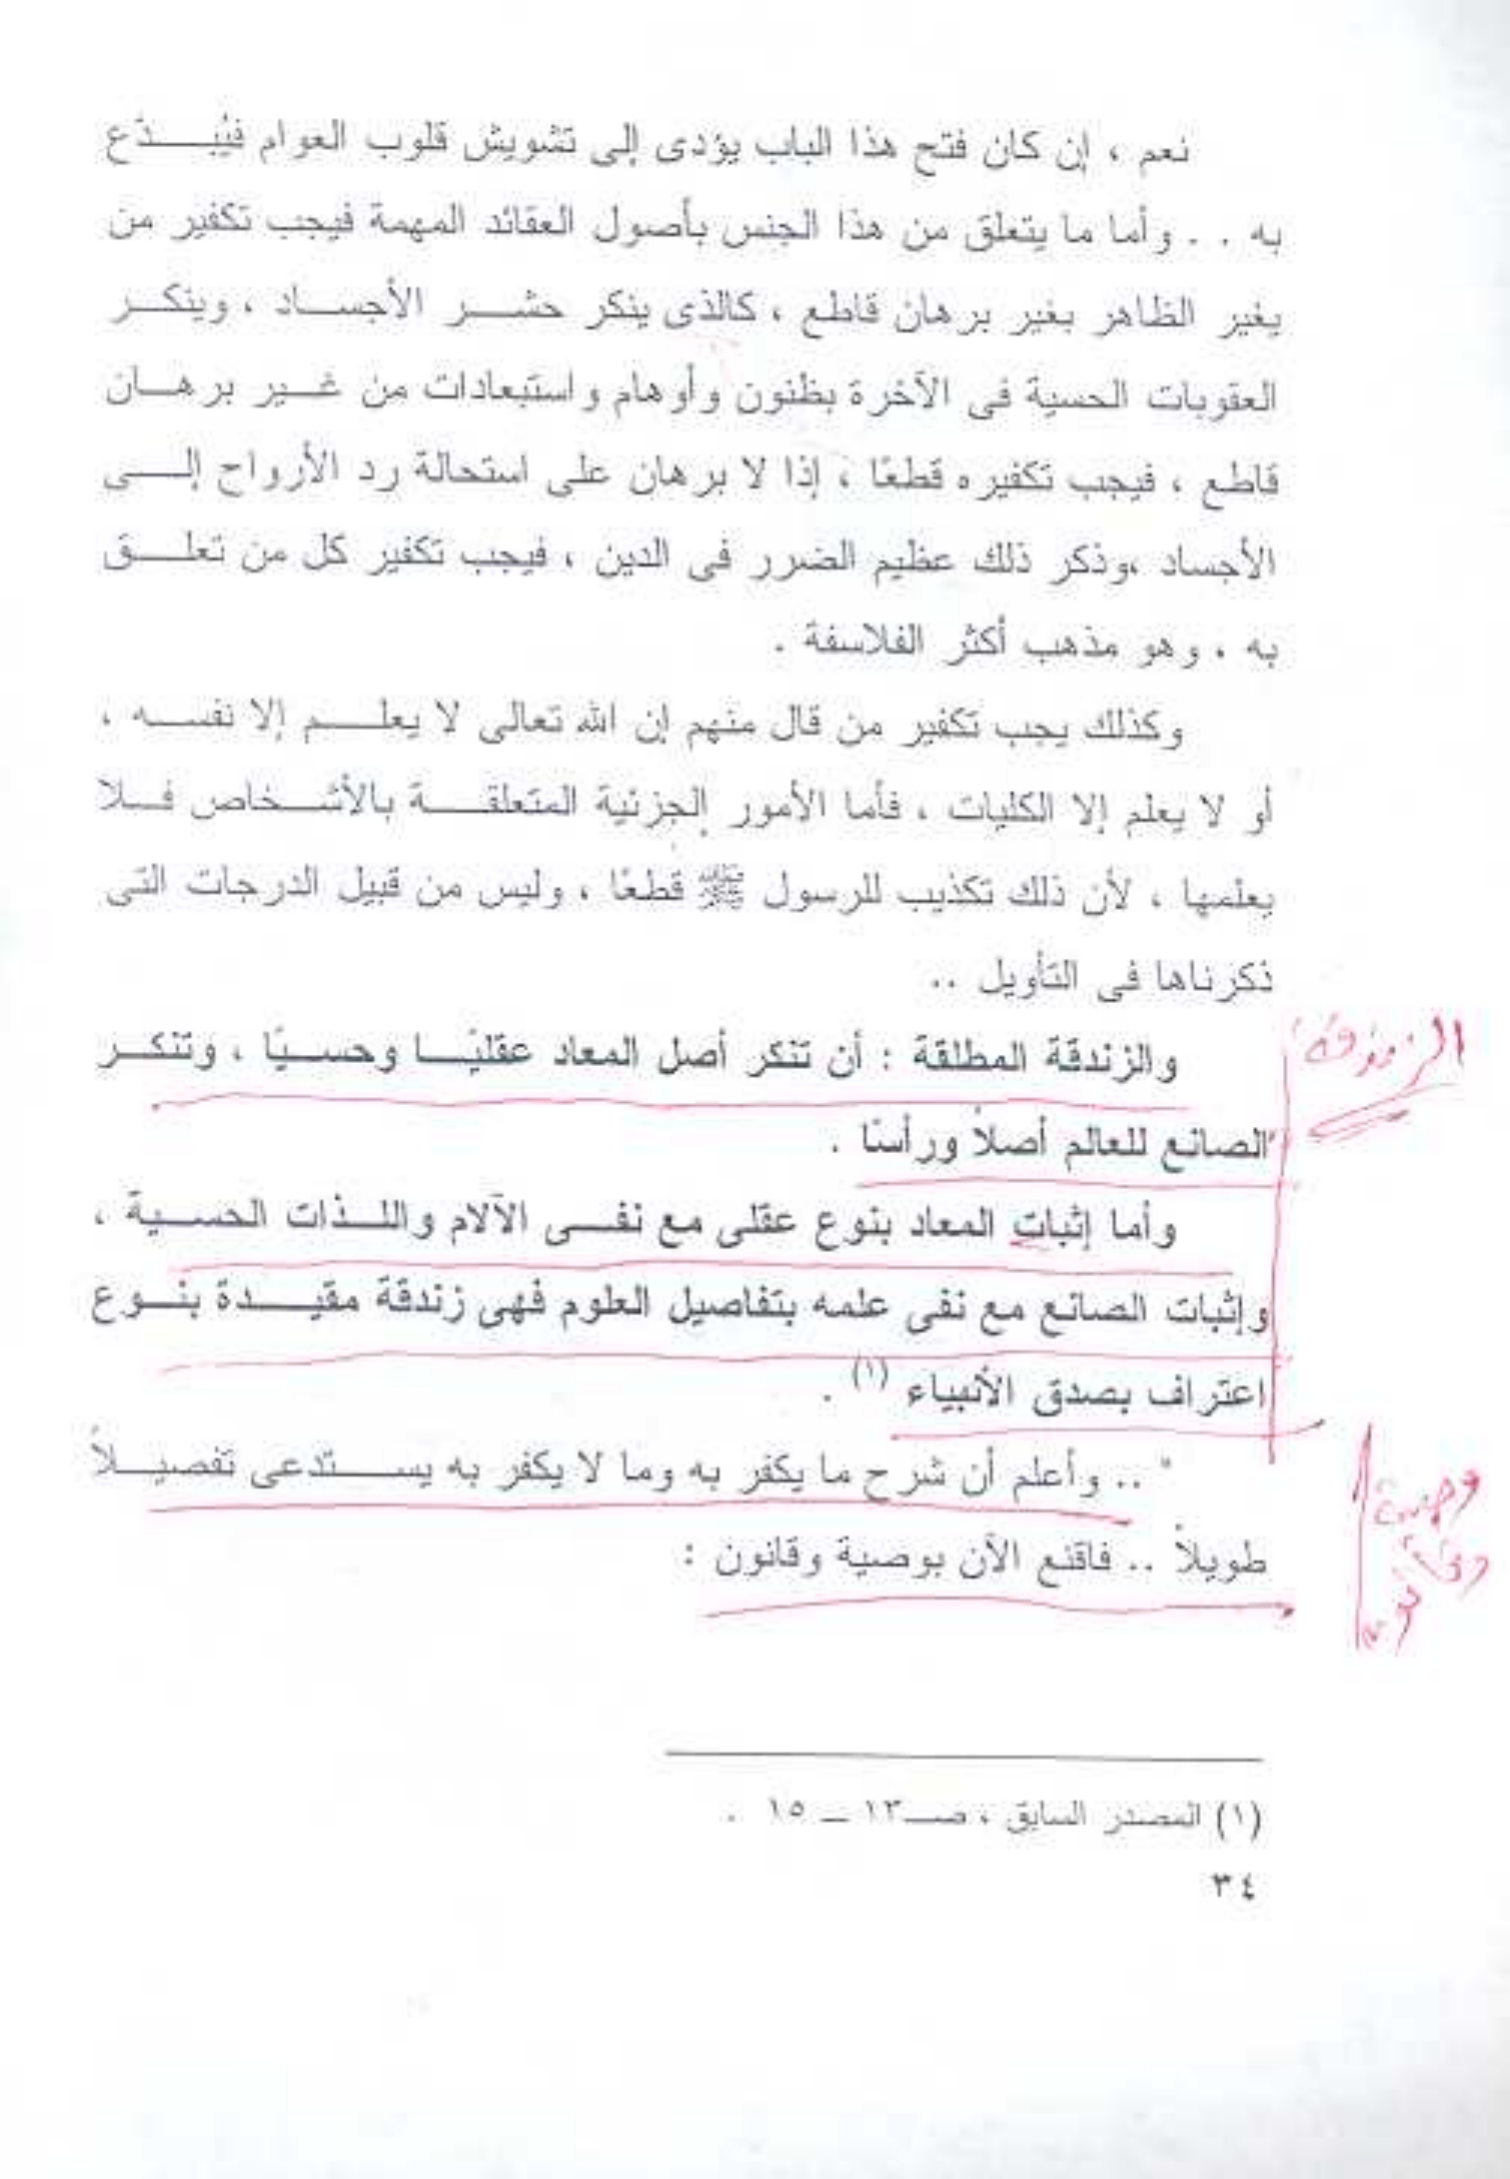 نعم ، إن كان فتح هذا الباب يؤدى إلى تشويش قلوب العوام فيُبـــدّع
به . . وأما ما يتعلق من هذا الجنس بأصول العقائد المهمة فيجب تكفير من
يغير الظاهر بغير برهان قاطع ، كالذى ينكر حشـــر الأجســـاد ، وينكـــر
العقوبات الحسية فى الآخرة بظنون وأوهام واستبعادات من غـــير برهـــان
قاطع ، فيجب تكفيره قطعًا ، إذا لا برهان على استحالة رد الأرواح إلـــى
الأجساد ،وذكر ذلك عظيم الضرر فى الدين ، فيجب تكفير كل من تعلـــق
به ، وهو مذهب أكثر الفلاسفة .
وكذلك يجب تكفير من قال منهم إن الله تعالى لا يعلـــم إلا نفســـه ،
أو لا يعلم إلا الكليات ، فأما الأمور الجزئية المتعلقـــة بالأشـــخاص فـــلا
يعلمها ، لأن ذلك تكذيب للرسول ﷺ قطعًا ، وليس من قبيل الدرجات التى
ذكرناها فى التأويل ..
والزندقة المطلقة : أن تنكر أصل المعاد عقليًـــا وحســـيًا ، وتنكـــر
الصانع للعالم أصلاً ورأسًا .
وأما إثبات المعاد بنوع عقلى مع نفـــى الآلام واللـــذات الحســـية ،
وإثبات الصانع مع نفى علمه بتفاصيل العلوم فهى زندقة مقيـــدة بنـــوع
اعتراف بصدق الأنبياء (١) .
" .. وأعلم أن شرح ما يكفر به وما لا يكفر به يســـتدعى تفصيـــلاً
طويلاً .. فاقنع الآن بوصية وقانون :
(١) المصدر السابق ، صـ١٣ ــ ١٥ .
٣٤
الزندقة
وصية
وقانون